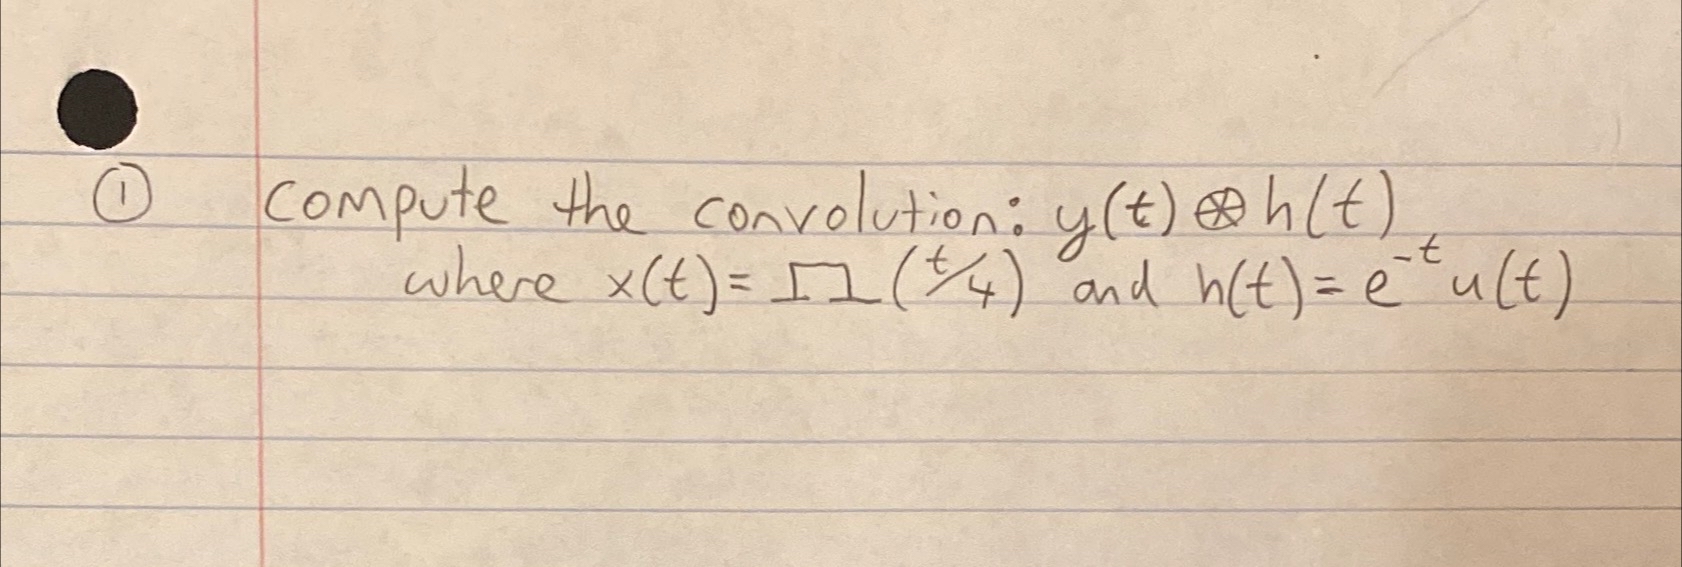 ① compute the convolution: y(t) ⊛ h(t)
where x(t) = Π (t/4) and h(t) = e^-t u(t)